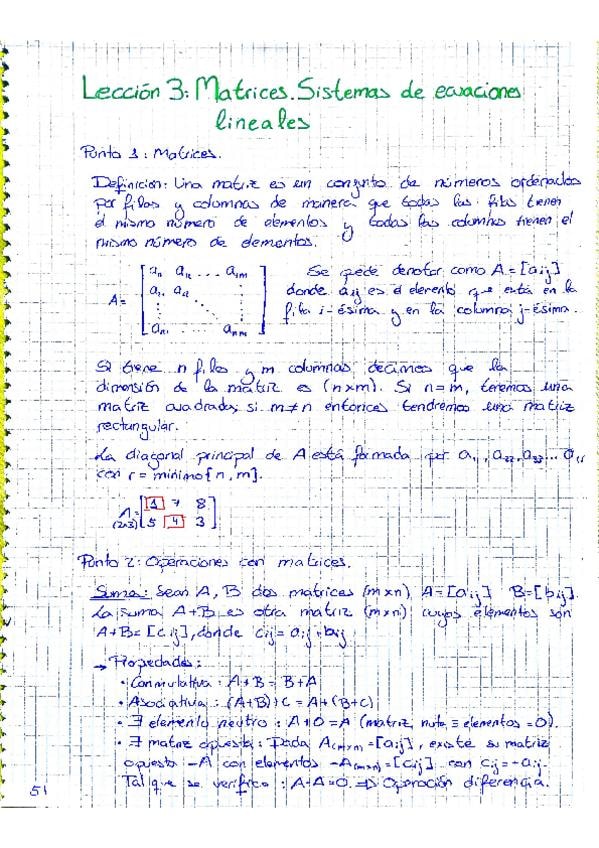 Lección 3: Matrices. Sistemas de ecuaciones
lineales
Punto 1: Matrices.
Definición: Una matriz es un conjunto de números ordenados
por filas y columnas de manera que todas las filas tienen
el mismo número de elementos y todas las columnas tienen el
mismo número de elementos.
A = [a₁₁ a₁₂ ... a₁ₘ
a₂₁ a₂₂
aₙ₁ ... aₙₘ]
Se puede denotar como A = [aij]
donde aij es el elemento que está en la
fila i-ésima y en la columna j-ésima.
Si tiene n filas y m columnas, decimos que la
dimensión de la matriz es (n×m). Si n=m, tenemos una
matriz cuadrada; si m≠n entonces tendremos una matriz
rectangular.
La diagonal principal de A está formada por a₁₁, a₂₂, a₃₃... aᵣᵣ
con r = mínimo{n, m}.
A = [1 7 8
(2×3) 5 4 3]
Punto 2: Operaciones con matrices.
Suma: Sean A, B dos matrices (m×n) A=[aij] B=[bij].
La suma A+B es otra matriz (m×n) cuyos elementos son
A+B = [cij], donde cij = aij + bij
→ Propiedades:
• Conmutativa: A+B = B+A
• Asociativa: (A+B)+C = A+(B+C)
• ∃ elemento neutro: A+0 = A (matriz nula ≡ elementos = 0).
• ∃ matriz opuesta: Dada A(m×n) = [aij], existe su matriz
opuesta -A con elementos -A(m×n) = [cij] con cij = -aij.
Tal que se verifica: A-A=0. ⇒ Operación diferencia.
51